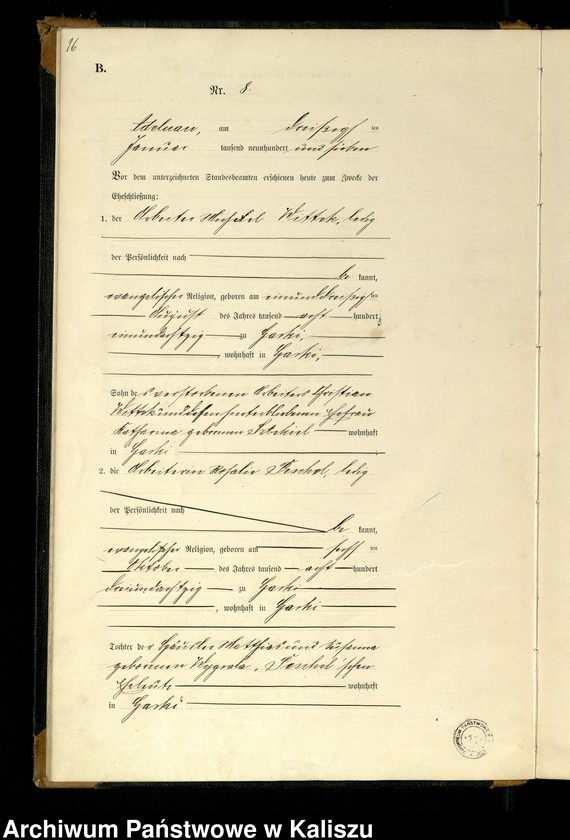 16
B.
Nr. 8.
Adelnau, am dreißigsten
Januar tausend neunhundert und sieben
Vor dem unterzeichneten Standesbeamten erschienen heute zum Zwecke der
Eheschließung:
1. der Arbeiter Wittek, ledig
der Persönlichkeit nach
be kannt,
evangelischer Religion, geboren am einunddreißigsten
August des Jahres tausend acht hundert
einundachtzig zu Garki,
, wohnhaft in Garki,
Sohn des verstorbenen Arbeiters Christian
Wittek und dessen hinterbliebenen Ehefrau
Katharina geborenen wohnhaft
in Garki
2. die Arbeiterin Rosalie Peschel, ledig
der Persönlichkeit nach
be kannt,
evangelischer Religion, geboren am sechsten
Oktober des Jahres tausend acht hundert
dreiundachtzig zu Garki
, wohnhaft in Garki
Tochter der Häusler Matthias und Susanna
geborenen Peschel'schen
Eheleute wohnhaft
in Garki
Archiwum Państwowe w Kaliszu